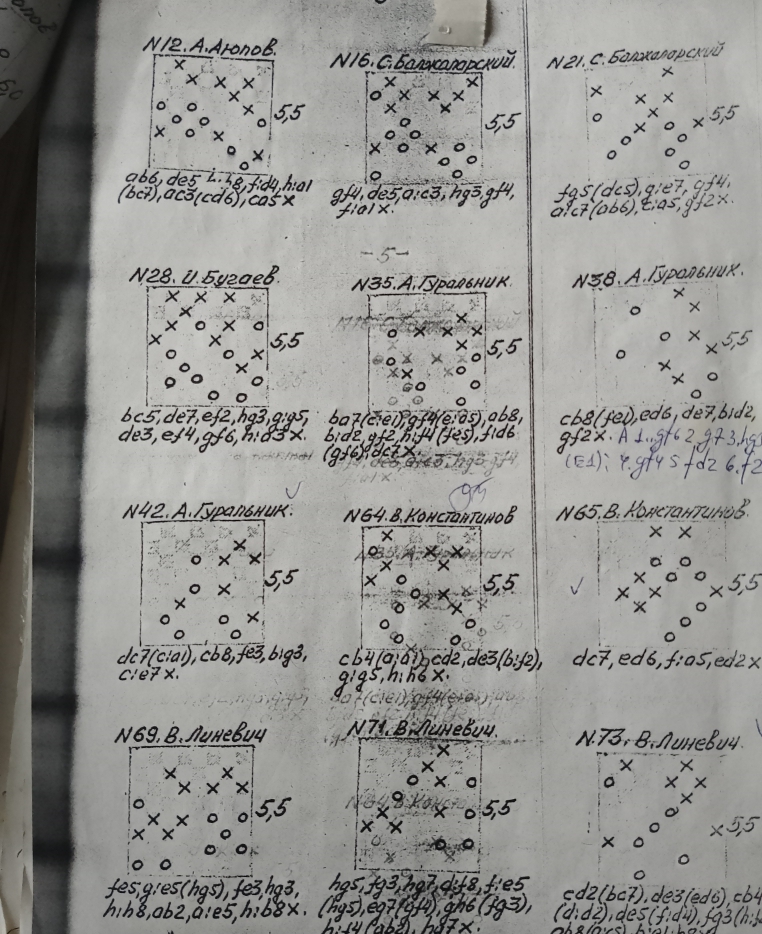 N12. А. Аюпов.
5,5
ab6, de5 f:d4, h:a1
(bc7), ac3(cd6), ca5x
N16. С. Балжаларский.
5,5
gf4, de5, a:c3, hg3, gf4,
f:a1x.
N21. С. Балжаларский
5,5
fg5(dc5), g:e7, gf4,
a:c7(ab6), gf2x.
-5-
N28. И. Бугаев.
5,5
bc5, de7, ef2, hg3, g:g5,
de3, ef4, gf6, h:d3x.
N35. А. Гуральник
5,5
ba7(c:e1), gf4(e:a5), ab8,
b:d2, gf2, h:f4(fe5), f:d6
(gf6), dc7x.
N38. А. Гуральник.
5,5
cb8(fe1), ed6, de7, b:d2,
gf2x.
N42. А. Гуральник.
5,5
dc7(c:a1), cb8, fe3, b:g3,
c:e7x.
N64. В. Константинов
5,5
cb4(a:a1), cd2, de3(b:f2),
g:g5, h:h6x.
N65. В. Константинов.
5,5
dc7, ed6, f:a5, ed2x
N69. В. Линевич
5,5
fe5, g:e5(hg5), fe3, hg3,
h:h8, ab2, a:e5, h:b8x.
N71. В. Линевич.
5,5
hg5, fg3, hg7, d:f8, f:e5
(hg5), eg7(gf4), gh6(fg3),
h:f4(ab2), hg7x.
N.73. В. Линевич.
5,5
cd2(bc7), de3(ed6), cb4
(d:d2), de5(f:d4), fg3